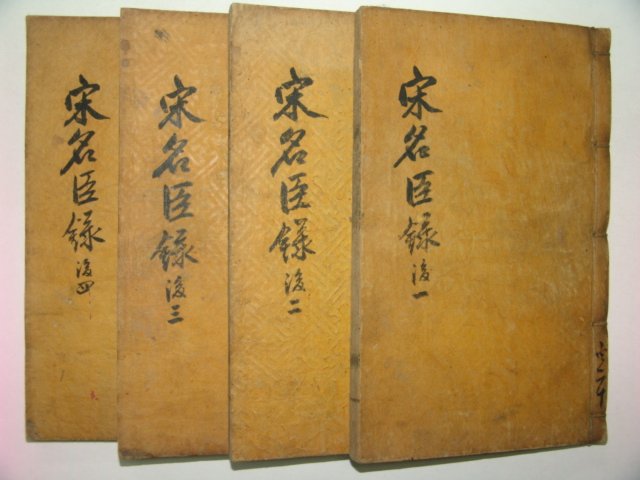 宋名臣録 後一
宋名臣録 後二
宋名臣録 後三
宋名臣録 後四